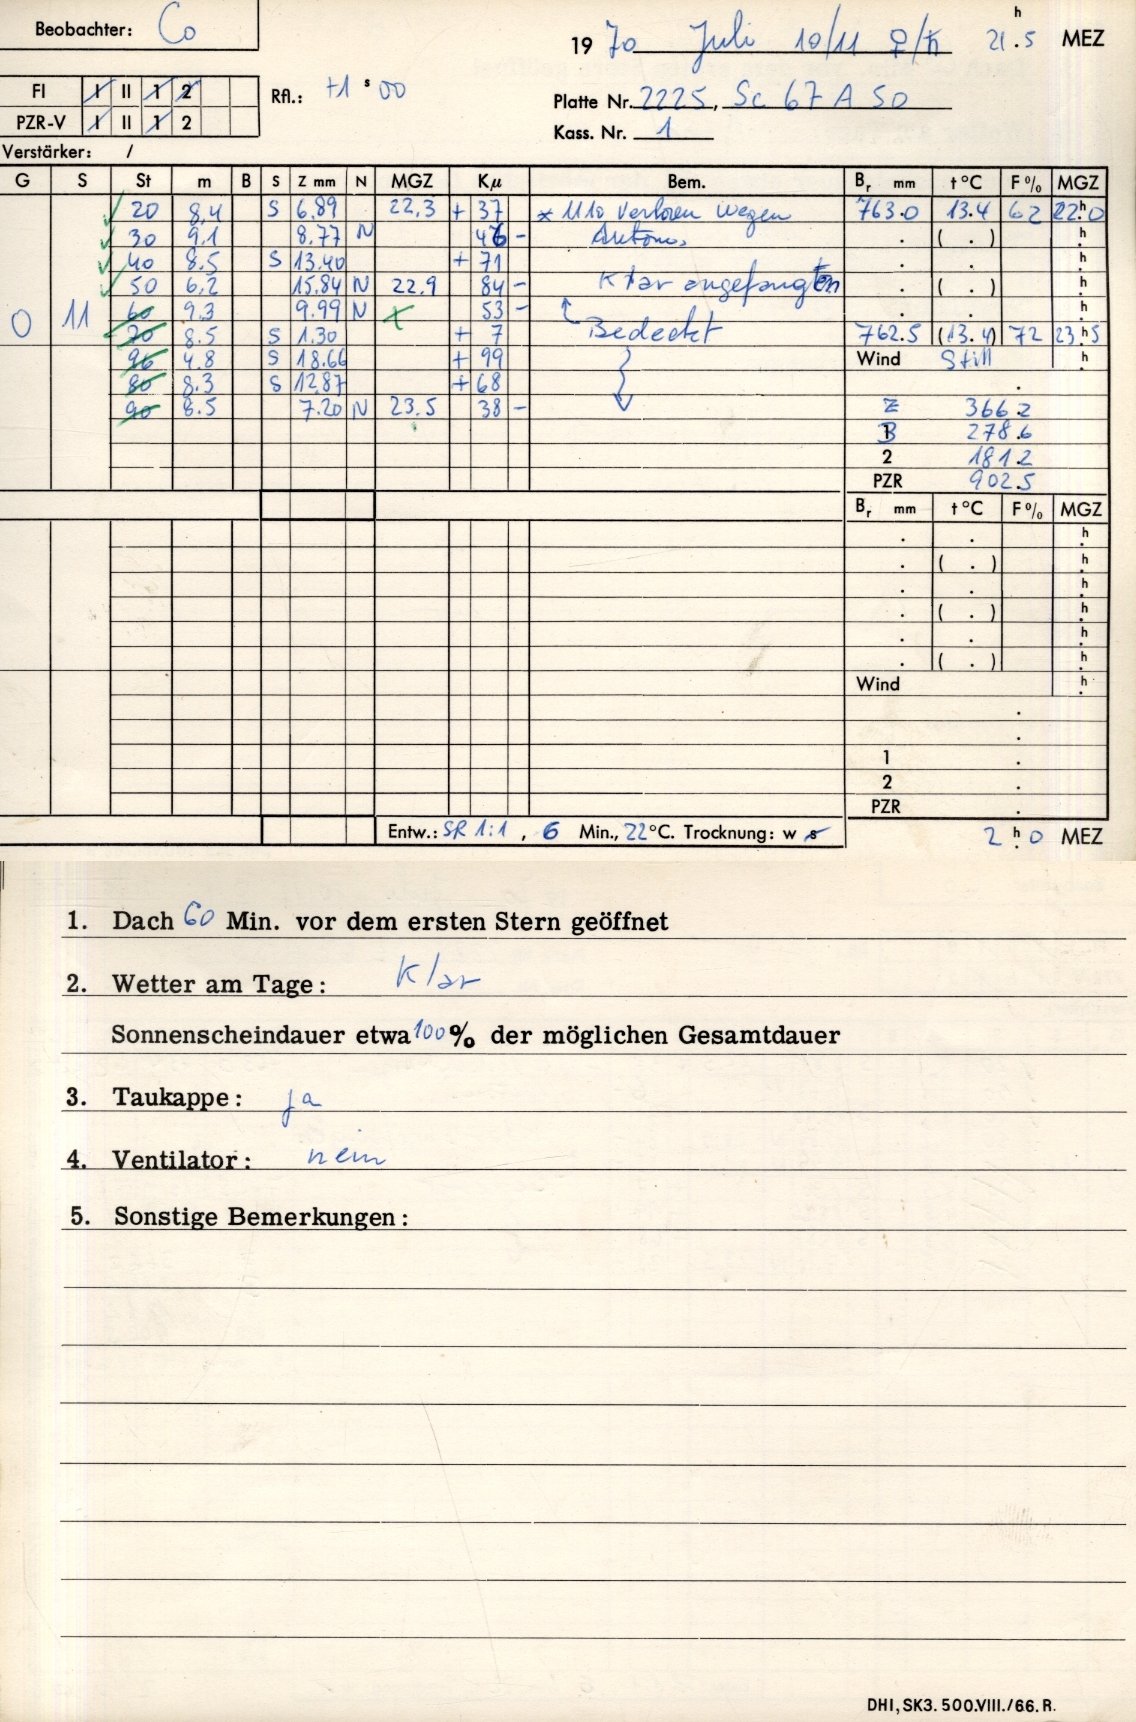 Beobachter: Co
1970 Juli 10/11 ♀/♄ 21.h5 MEZ
FI I II 1 2
PZR-V I II 1 2
Rfl.: +1 s 00
Platte Nr. 2225, Sc 67 A 50
Kass. Nr. 1
Verstärker: /
G S St m B S Z mm N MGZ Kμ Bem. Br mm t °C F % MGZ
20 8.4 S 6.89 22.3 + 37 * 1110 verloren wegen 763.0 13.4 62 22.h0
30 9.1 8.77 N 46 - Autom. . ( . ) .h
40 8.5 S 13.40 + 71 . . .h
50 6.2 15.84 N 22.9 84 - Klar angefangen . ( . ) .h
0 11 60 9.3 9.99 N 53 - . . .h
70 8.5 S 1.30 + 7 Bedeckt 762.5 (13.4) 72 23.h5
96 4.8 S 18.66 + 99 Wind Still .h
80 8.3 S 12.87 + 68 .
90 8.5 7.20 N 23.5 38 - Z 366.2
B 278.6
2 181.2
PZR 902.5
Br mm t °C F % MGZ
. . .h
. ( . ) .h
. . .h
. ( . ) .h
. . .h
. ( . ) .h
Wind .h
.
.
1 .
2 .
PZR .
Entw.: SR 1:1, 6 Min., 22°C. Trocknung: w s
2.h0 MEZ
1. Dach 60 Min. vor dem ersten Stern geöffnet
2. Wetter am Tage: Klar
Sonnenscheindauer etwa 100% der möglichen Gesamtdauer
3. Taukappe: ja
4. Ventilator: nein
5. Sonstige Bemerkungen:
DHI, SK3. 500.VIII./66. R.